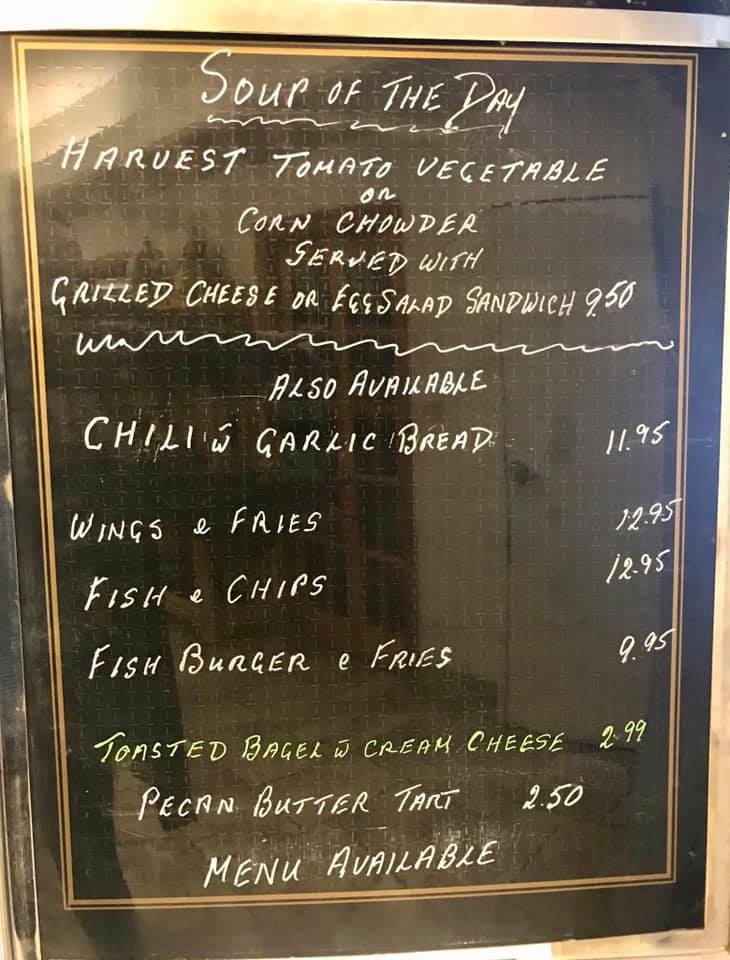 SOUP OF THE DAY
HARVEST TOMATO VEGETABLE
OR
CORN CHOWDER
SERVED WITH
GRILLED CHEESE OR EGG SALAD SANDWICH 9.50
ALSO AVAILABLE
CHILI w̄ GARLIC BREAD 11.95
WINGS & FRIES 12.95
FISH & CHIPS 12.95
FISH BURGER & FRIES 9.95
TOASTED BAGEL w̄ CREAM CHEESE 2.99
PECAN BUTTER TART 2.50
MENU AVAILABLE